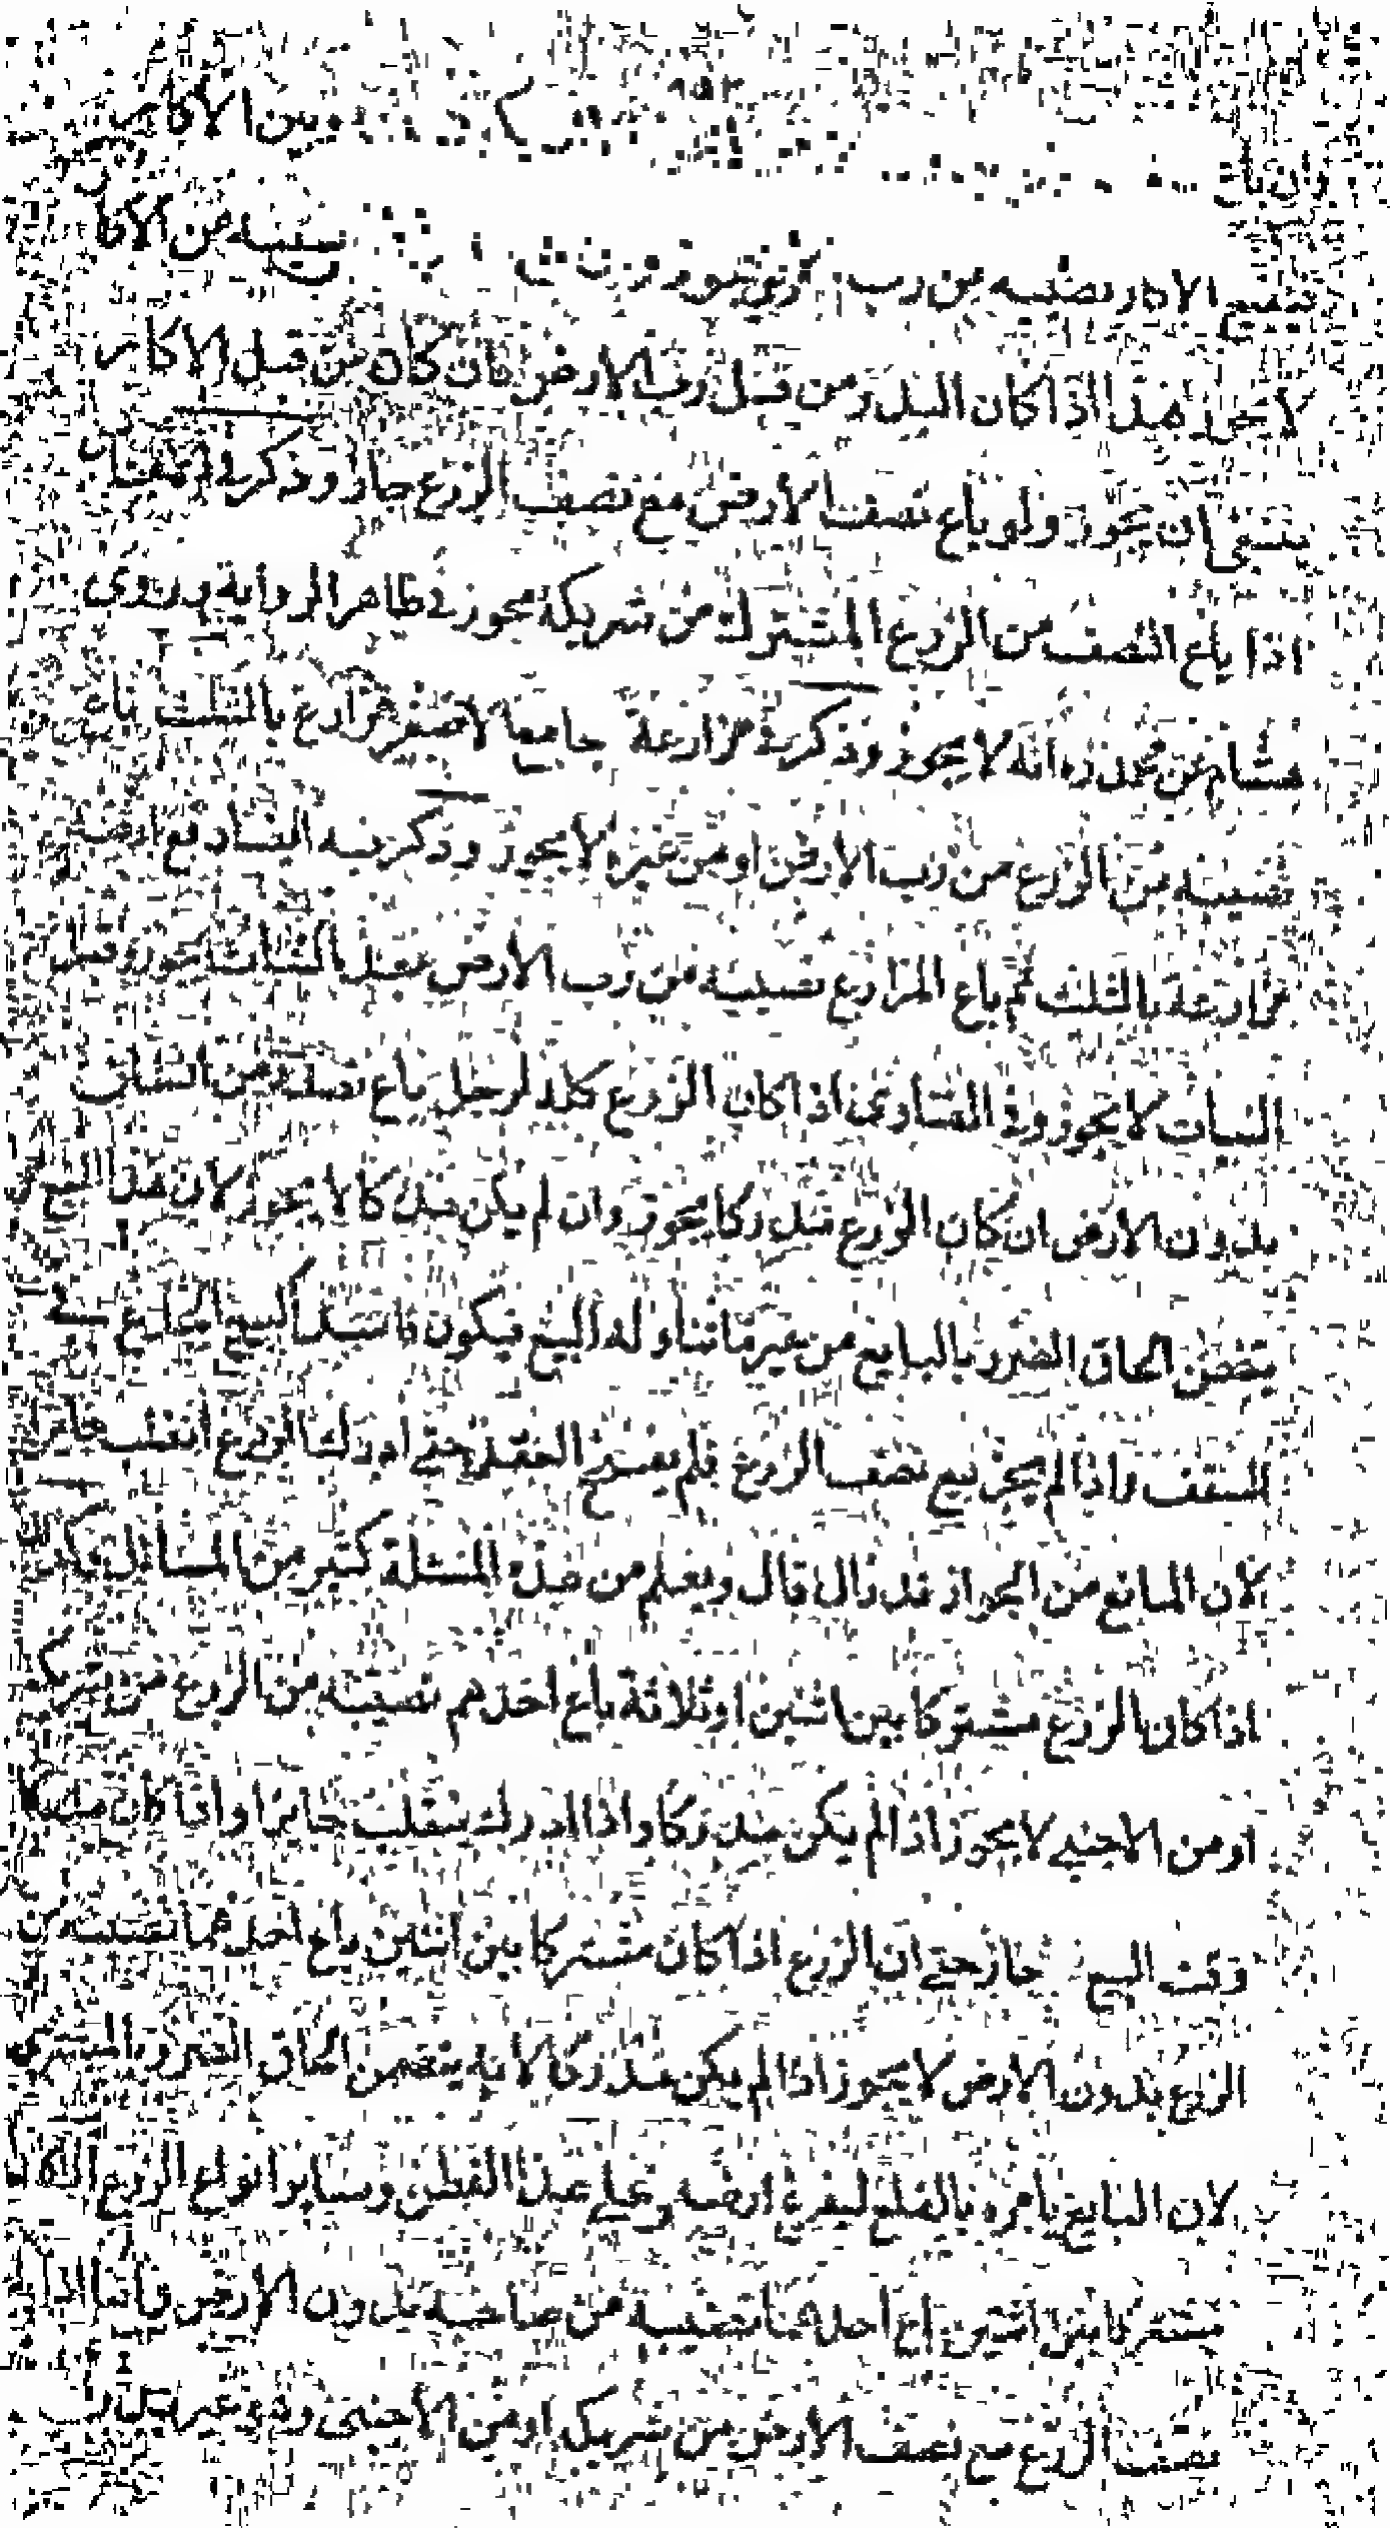 وان باع وبين الاكار
الاكار نصيبه من رب نصيبه من الاكا
لا يجوز هذا اذا كان البذر من قبل رب الارض فان كان من قبل الاكار
ينبغي ان يجوز ولو باع نصف الارض مع نصف الزرع جاز وذكر في
اذا باع النصف من الزرع المشترك من شريكه يجوز في ظاهر الرواية وروى
هشام عن محمد ره انه لا يجوز وذكر في مزارعة جامع الاصغر مزارع بالثلث باع
نصيبه من الزرع من رب الارض او من غيره لا يجوز وذكر فيه ايضا دفع ارضه
مزارعة بالثلث ثم باع المزارع نصيبه من رب الارض بعد النبات يجوز وقبل
النبات لا يجوز وفي الفتاوى اذا كان الزرع كله لرجل باع نصفه من انسان
بدون الارض ان كان الزرع مدركا يجوز وان لم يكن مدركا لا يجوز لان هذا البيع
يتضمن الحاق الضرر بالبايع من غير ما تناوله البيع فيكون فاسدا كبيع الجذع في
السقف واذا لم يجز بيع نصف الزرع فلم يفسخ العقد حتى ادرك الزرع انقلب جايزا
لان المانع من الجواز قد زال قال ويعلم من هذه المسئلة كثير من المسائل
اذا كان الزرع مشتركا بين اثنين او ثلاثة باع احدهم نصيبه من الزرع من شريكه
او من الاجنبي لا يجوز اذا لم يكن مدركا واذا ادرك ينقلب جايزا واذا كان مدركا
وقت البيع جاز حتى ان الزرع اذا كان مشتركا بين اثنين باع احدهما نصيبه من
الزرع بدون الارض لا يجوز اذا لم يكن مدركا لانه يتضمن الحاق الضرر بالمشتري
لان البايع يامره بالقلع ليفرغ ارضه وعلى هذا القطن وساير انواع الزرع
مشتركا بين اثنين باع احدهما نصيبه من صاحبه بدون الارض واما اذا
نصف الزرع مع نصف الارض من شريك او من الاجنبي